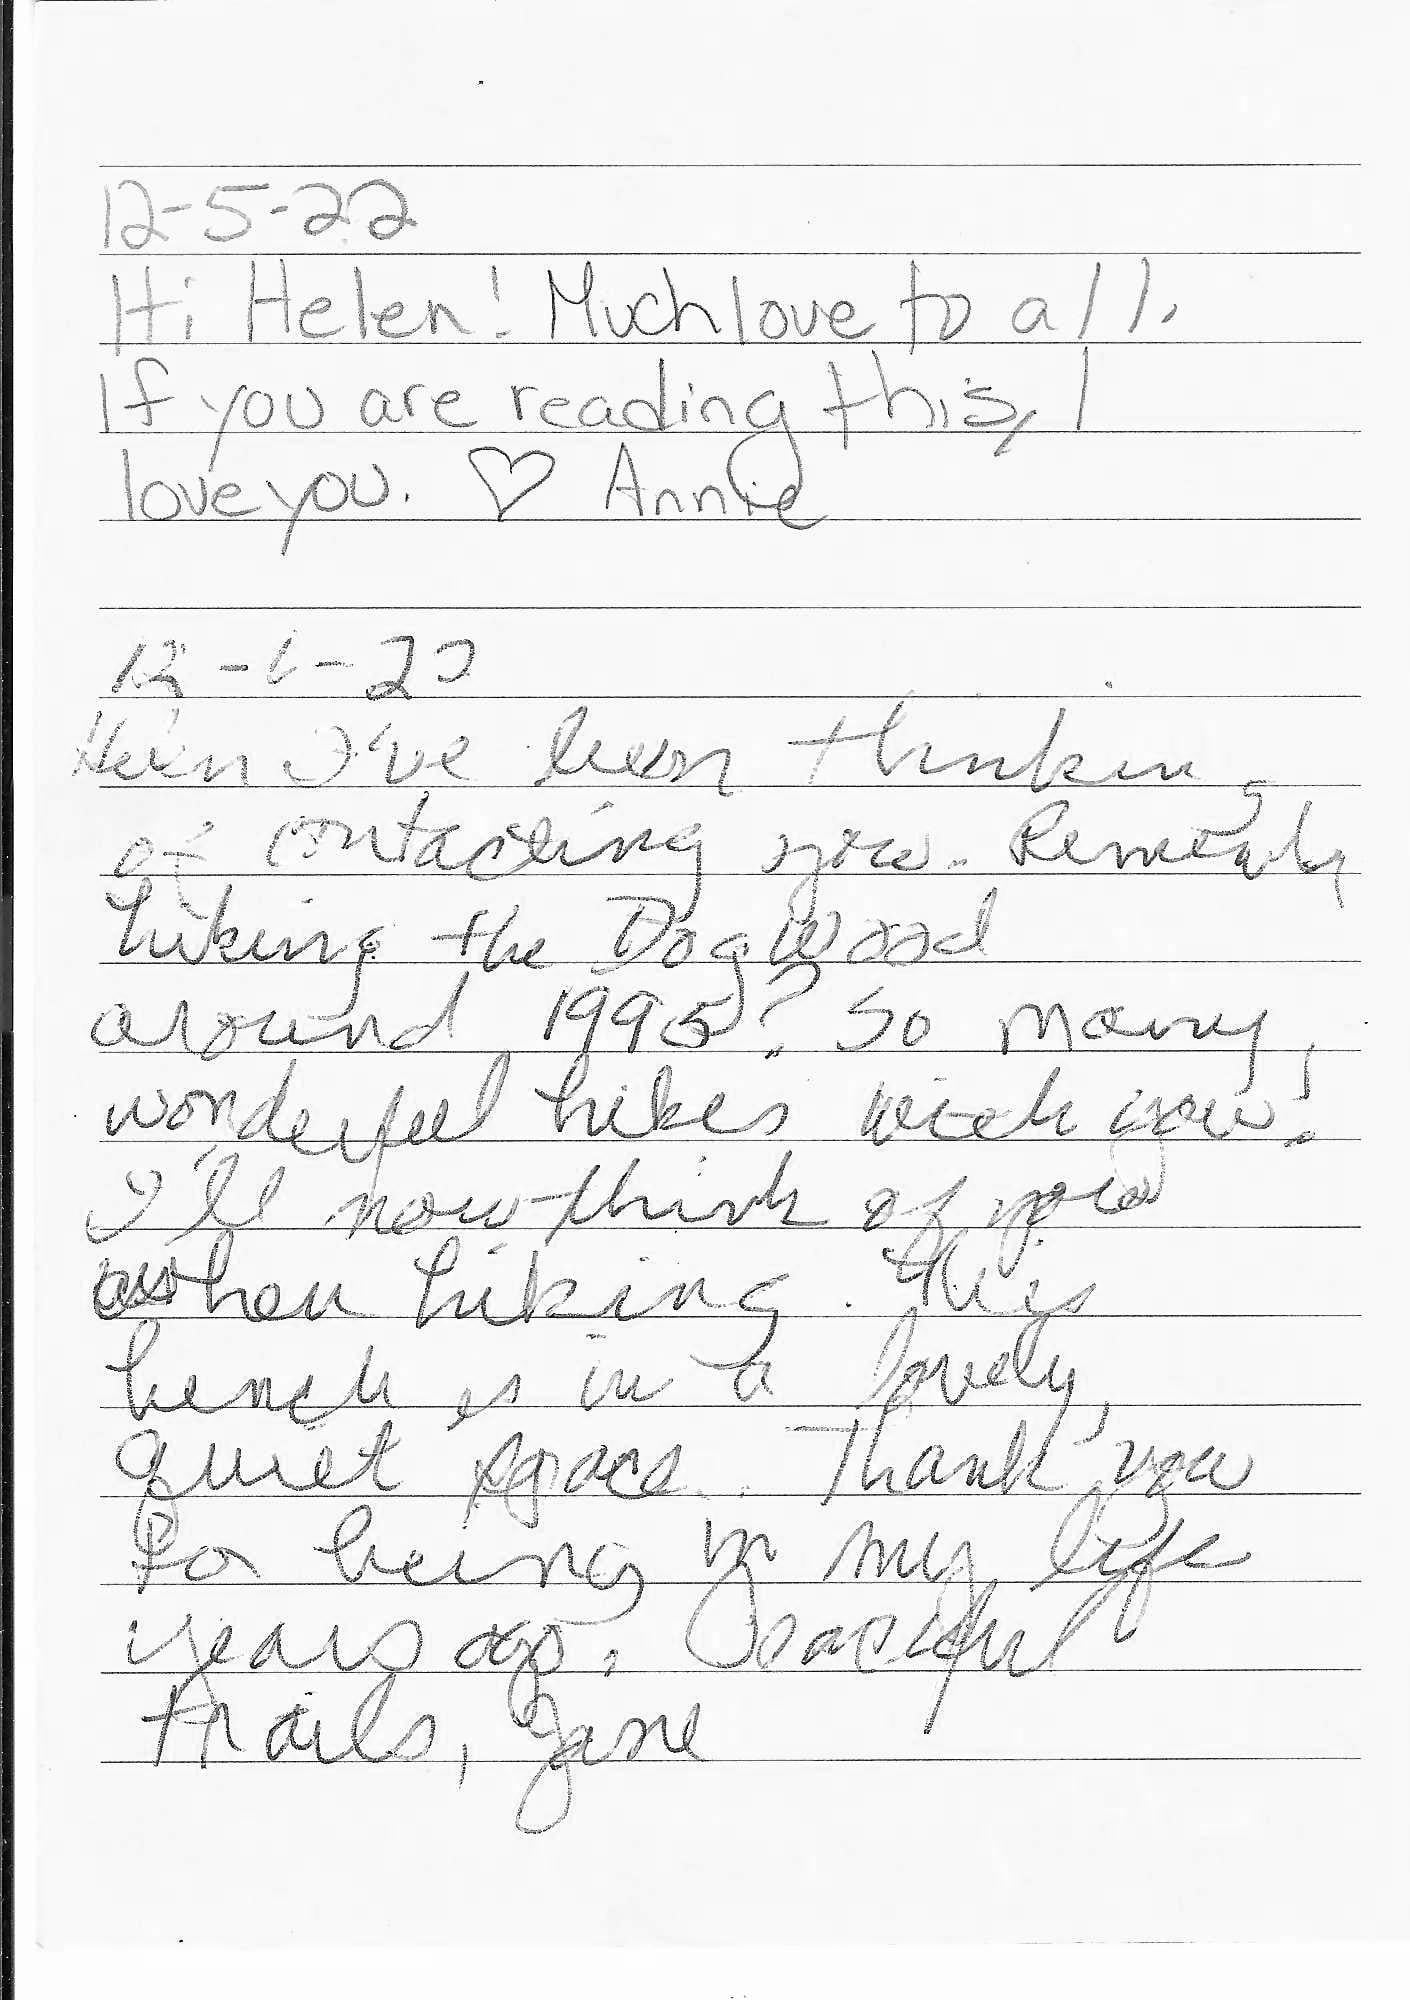 12-5-22
Hi Helen! Much love to all.
If you are reading this, I
love you. ♡ Annie
12-6-22
Helen I've been thinking
of contacting you. Remember
hiking the Dogwood
around 1995? So many
wonderful hikes with you!
I'll now think of you
when hiking. This
bench is in a lovely,
quiet space. Thank you
for being in my life
years ago. Peaceful
trails, Jane